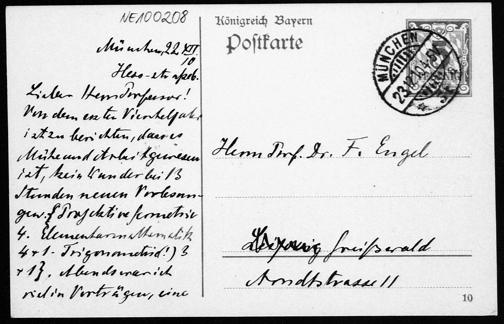 NE100208
Königreich Bayern
Postkarte
MÜNCHEN
München, 22 XII
10
Hess-str
Lieber Herr Professor!
Von dem ersten Vierteljahr
ist zu berichten, dass es
Mühe und Arbeit gewesen
ist, kein Wunder bei 13
Stunden neuen Vorlesun-
gen. Projektive Geometrie
4. Elementarmathematik
4 + 1. Trigonometrie!) 3
+ 1}. Abends war ich
viel in Vorträgen, eine
Herrn Prof. Dr. F. Engel
Greifswald
Arndtstrasse 11
10